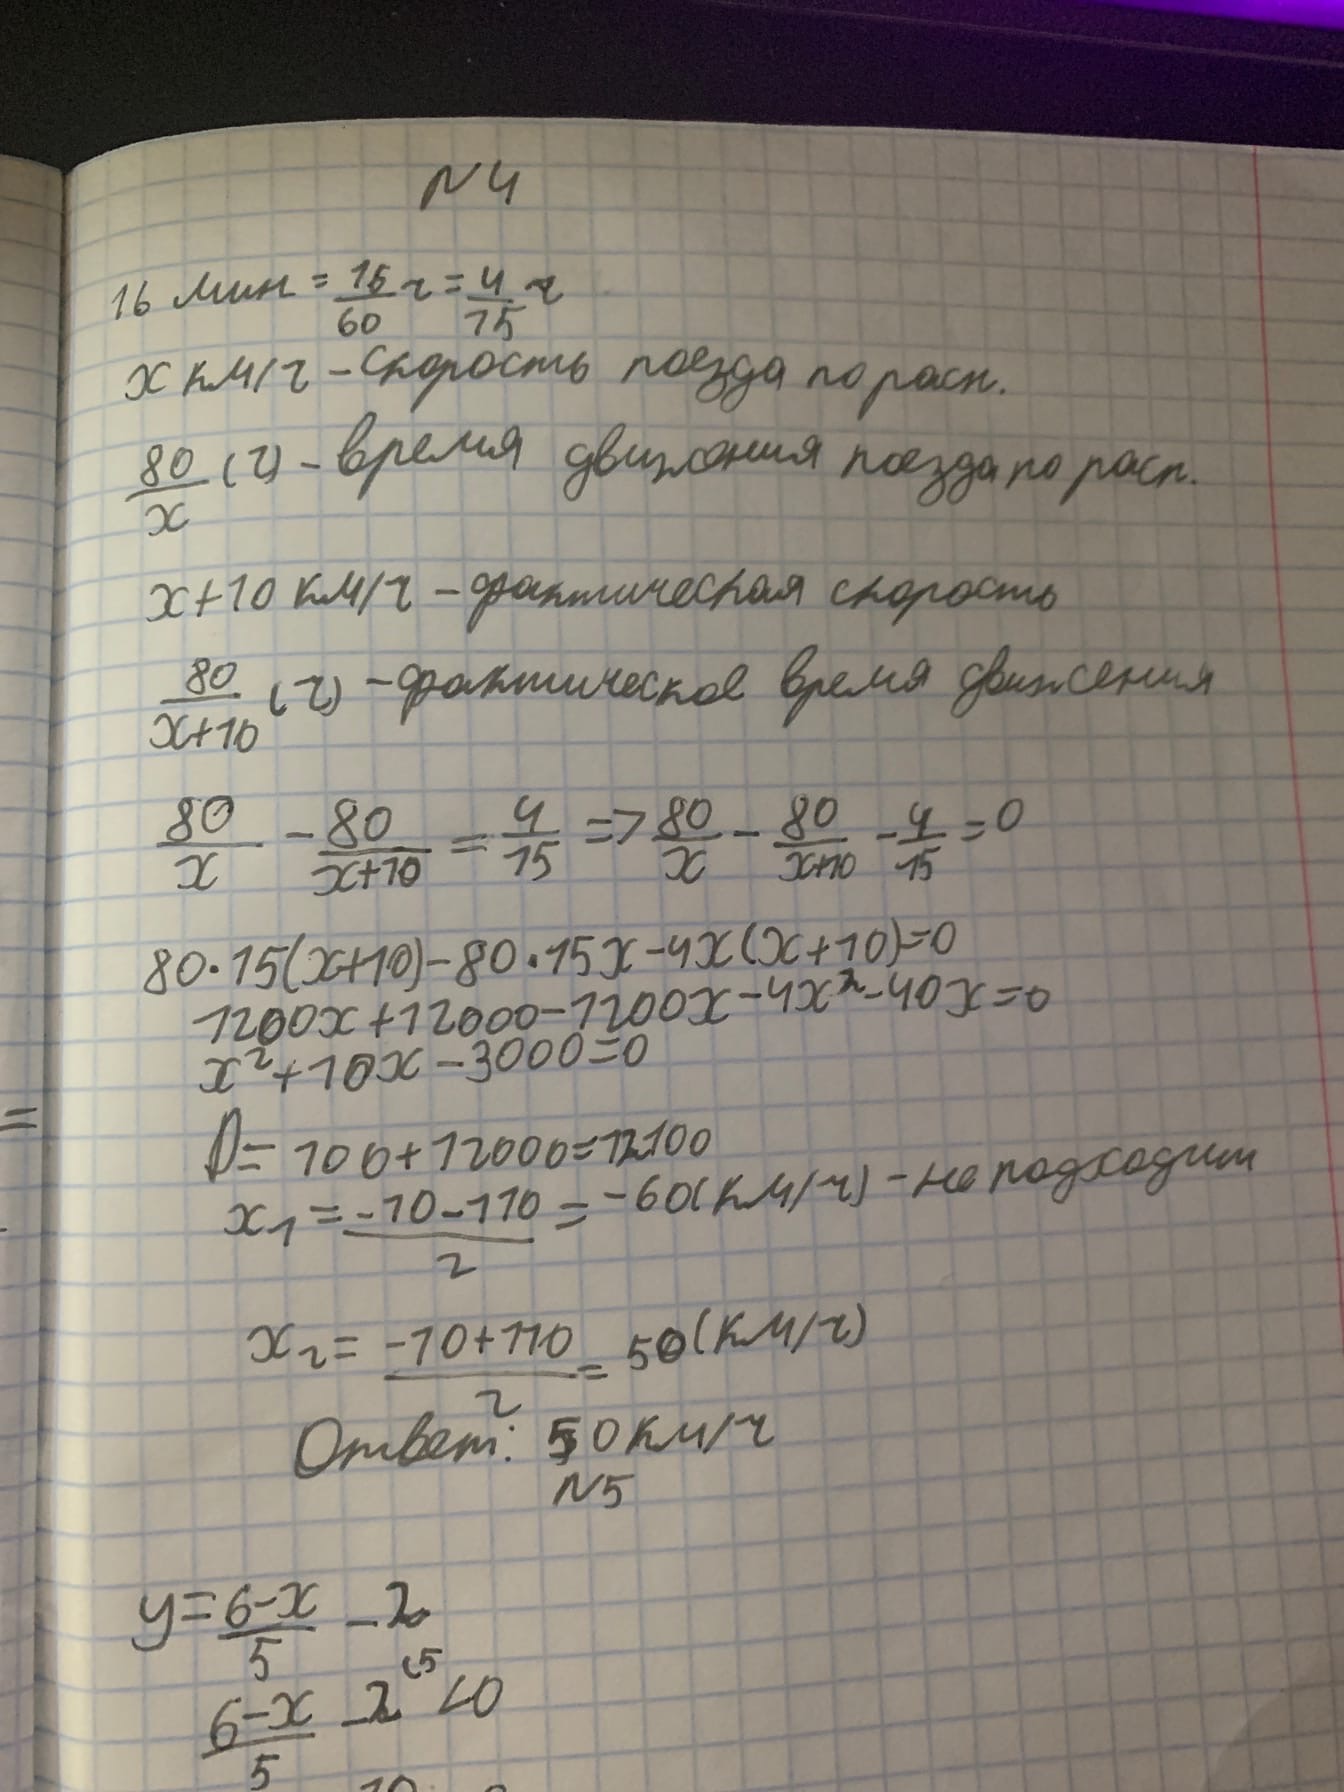 N4
16 мин = 16/60 ч = 4/15 ч
x км/ч – скорость поезда по расп.
80/x (ч) – время движения поезда по расп.
x+10 км/ч – фактическая скорость
80/(x+10) (ч) – фактическое время движения
80/x - 80/(x+10) = 4/15 => 80/x - 80/(x+10) - 4/15 = 0
80·15(x+10)-80·15x-4x(x+10)=0
1200x+12000-1200x-4x²-40x=0
x²+10x-3000=0
D=100+12000=12100
x₁=(-10-110)/2=-60(км/ч) - не подходит
x₂=(-10+110)/2=50(км/ч)
Ответ: 50 км/ч
N5
y=(6-x)/5 -2
(6-x)/5 -2^(5 <0